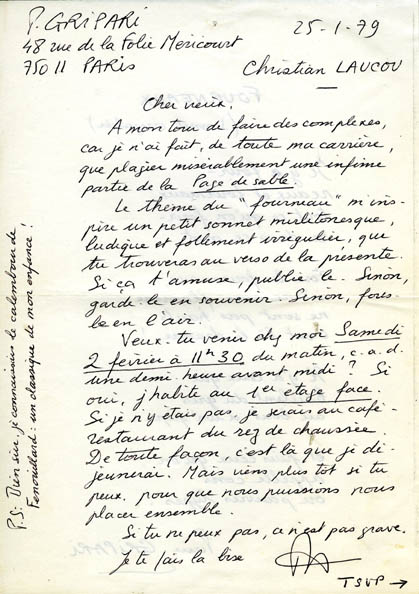 P. GRIPARI
48 rue de la Folie Méricourt
75011 PARIS
25-1-79
Christian LAUCOU
Cher vieux,
A mon tour de faire des complexes,
car je n'ai fait, de toute ma carrière,
que plagier misérablement une infime
partie de la Page de sable.
Le thème du "fourneau" m'ins-
pire un petit sonnet mirlitonesque,
ludique et follement irrégulier, que
tu trouveras au verso de la présente.
Si ça t'amuse, publie-le. Sinon,
garde-le en souvenir. Sinon, fous-
le en l'air.
Veux-tu venir chez moi Samedi
2 février à 11h30 du matin, c.a.d.
une demi-heure avant midi ? Si
oui, j'habite au 1er étage face.
Si je n'y étais pas, je serais au café-
restaurant du rez de chaussée
De toute façon, c'est là que je dé-
jeunerai. Mais viens plus tôt si tu
peux, pour que nous puissions nous
placer ensemble.
Si tu ne peux pas, ce n'est pas grave.
Je te fais la bise
TSVP →
P.S: Bien sûr, je connaissais le calembour de
Fenouillard : un classique de mon enfance !